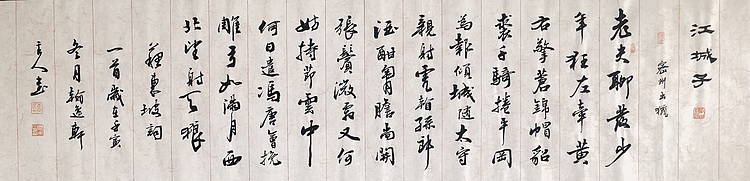 江城子
密州出猎
老夫聊发少
年狂左牵黄
右擎苍锦帽貂
裘千骑捲平冈
为报倾城随太守
亲射虎看孙郎
酒酣胸胆尚开
张鬓微霜又何
妨持节云中
何日遣冯唐会挽
雕弓如满月西
北望射天狼
苏东坡词
一首岁在壬寅
冬月翰逸轩